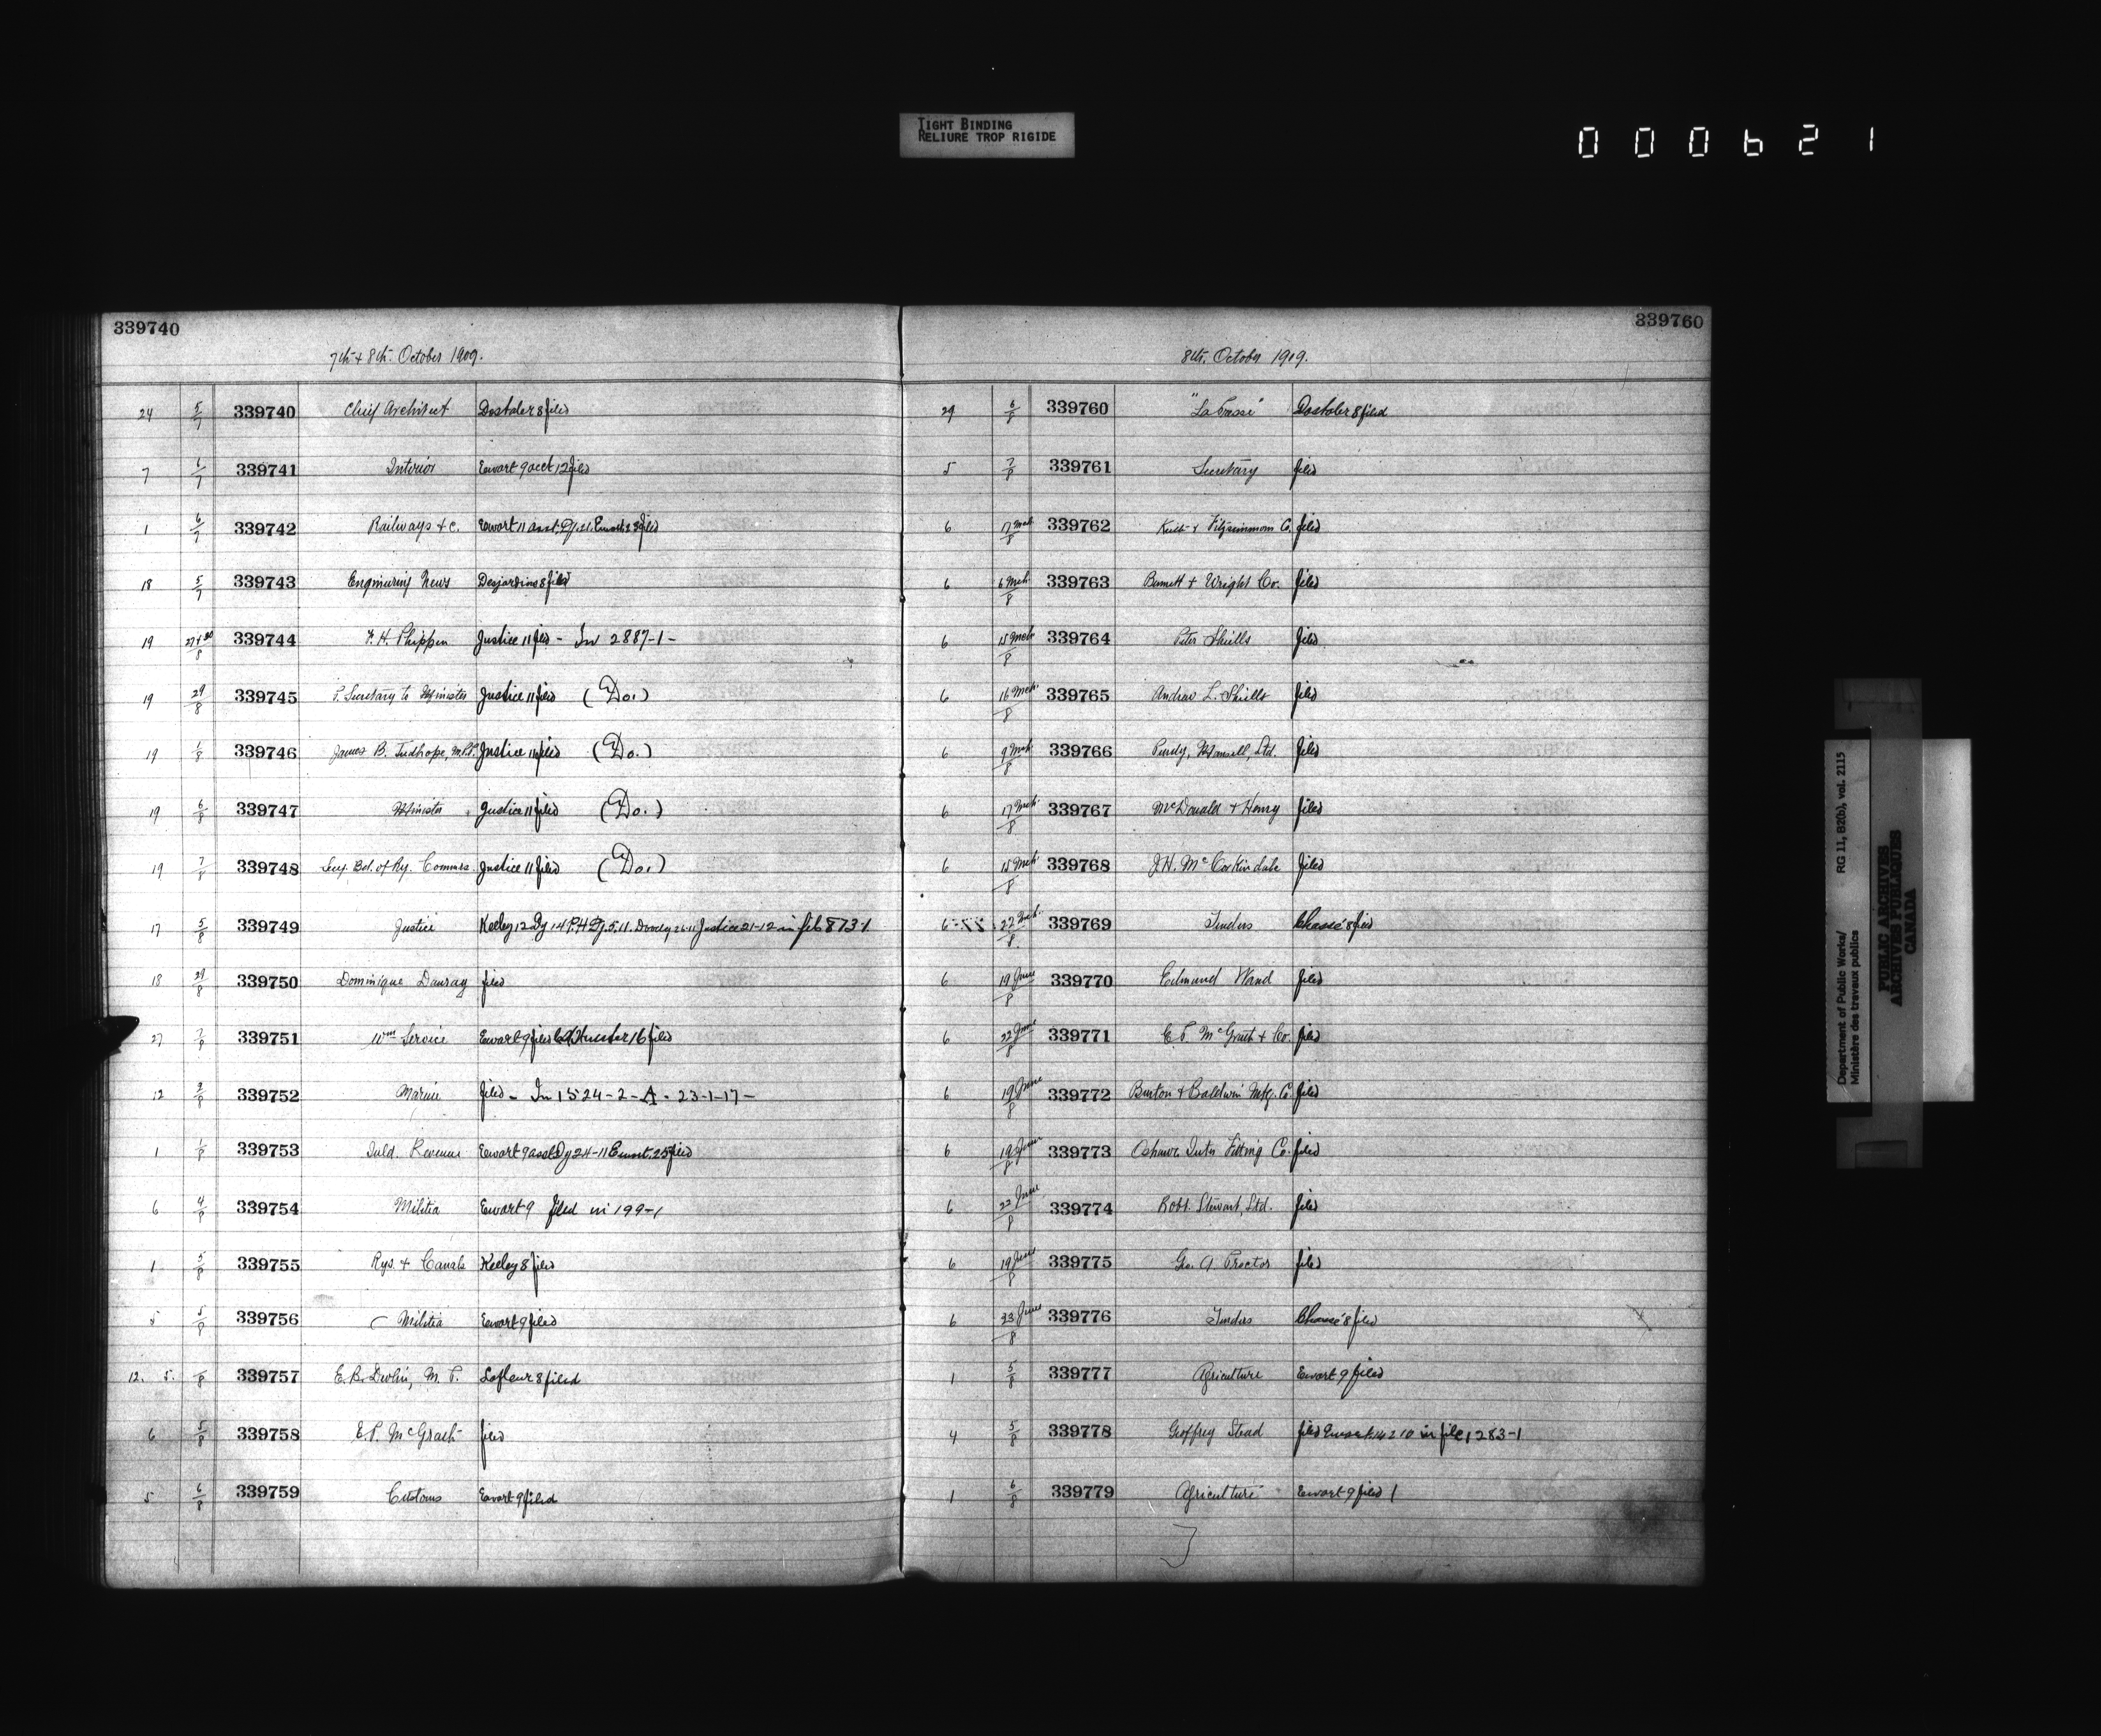 TIGHT BINDING
RELIURE TROP RIGIDE
000621
339740
7th + 8th October 1909.
24 5/7 339740 Chief Architect Dostaler 8 filed
7 6/7 339741 Interior Ewart 9 acct 12 filed
1 6/7 339742 Railways & c. Ewart 11 filed
18 5/7 339743 Engineering News Desjardins 8 filed
19 339744 F. H. Phippen Justice 11 filed - In 2887-1-
19 29/8 339745 P. Secretary to Minister Justice 11 filed (Do.)
19 1/8 339746 James B. Tudhope, M.P.P. Justice 11 filed (Do.)
19 6/8 339747 Minister Justice 11 filed (Do.)
19 7/8 339748 Secy. Bd. of Ry. Commrs. Justice 11 filed (Do.)
17 5/8 339749 Justice Keeley 12 Dy 14 Justice 21-12 in file 873-1
18 29/8 339750 Dominique Dauray filed
27 7/8 339751 Wm Service Ewart 9 filed Hunter 16 filed
12 2/8 339752 Marine filed - In 1524-2-A-23-1-17-
1 1/8 339753 Inld. Revenue Ewart 9 Dy 24-11 filed
6 4/8 339754 Militia Ewart 9 filed in 199-1
1 5/8 339755 Rys. + Canals Keeley 8 filed
5 5/8 339756 Militia Ewart 9 filed
12. 5. /8 339757 E. B. Devlin, M. P. Lafleur 8 filed
6 5/8 339758 E. P. McGrath filed
5 6/8 339759 Customs Ewart 9 filed
339760
8th. October 1909.
29 6/8 339760 "La Presse" Dostaler 8 filed
5 7/8 339761 Secretary filed
6 17 Mch/8 339762 + Fitzsimmons Co. filed
6 6 Mch/8 339763 Bennett + Wright Co. filed
6 15 Mch/8 339764 Peter Shiells filed
6 16 Mch/8 339765 Andrew L. Shiells filed
6 9 Mch/8 339766 Purdy, Mansell, Ltd. filed
6 17 Mch/8 339767 McDonald + Henry filed
6 15 Mch/8 339768 J. H. McCorkindale filed
6 22 Mch/8 339769 Tenders Chassé 8 filed
6 19 June/8 339770 Edmund Wand filed
6 22 June/8 339771 E. P. McGrath + Co. filed
6 19 June/8 339772 Burton + Baldwin Mfg. Co. filed
6 19 June/8 339773 Oshawa Inter Fitting Co. filed
6 22 June/8 339774 Robt. Stewart, Ltd. filed
6 19 June/8 339775 Geo. A. Proctor filed
6 23 June/8 339776 Tenders Chassé 8 filed
1 5/8 339777 Agriculture Ewart 9 filed
4 5/8 339778 Geoffrey Stead filed in file 1283-1
1 6/8 339779 Agriculture Ewart 9 filed
Department of Public Works/ RG 11, B2(b), vol. 2115
Ministère des travaux publics
PUBLIC ARCHIVES
ARCHIVES PUBLIQUES
CANADA